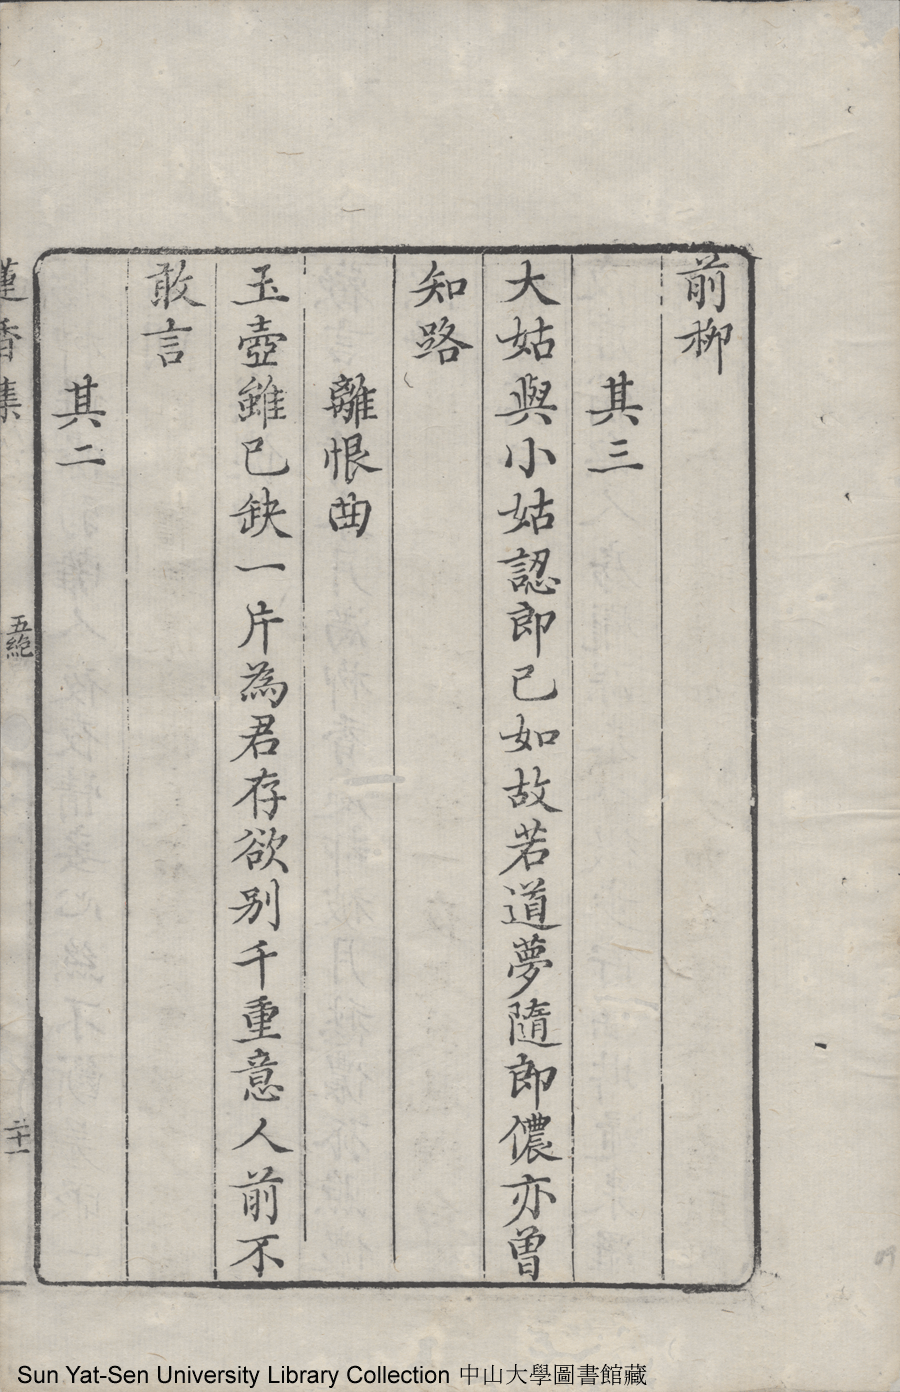 前柳
其三
大姑與小姑認郎已如故若道夢隨郎儂亦曾
知路
離恨曲
玉壺雖已缺一片為君存欲别千重意人前不
敢言
其二
蓮香集
五絶
二十一
Sun Yat-Sen University Library Collection 中山大學圖書館藏